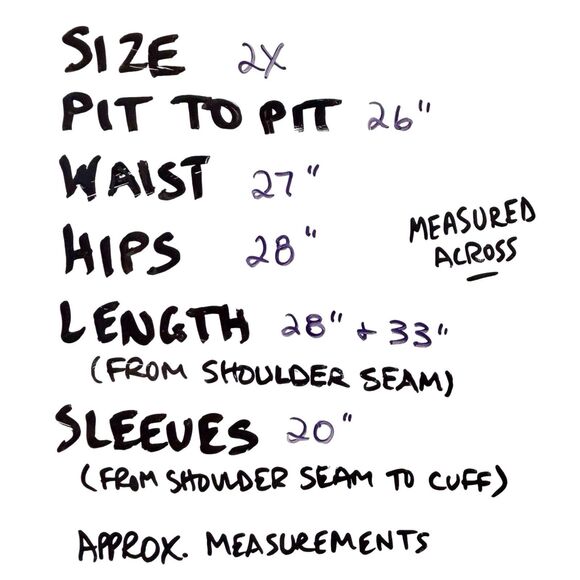 SIZE 2X
PIT TO PIT 26"
WAIST 27"
HIPS 28"
MEASURED
ACROSS
LENGTH 28" + 33"
(FROM SHOULDER SEAM)
SLEEVES 20"
(FROM SHOULDER SEAM TO CUFF)
APPROX. MEASUREMENTS